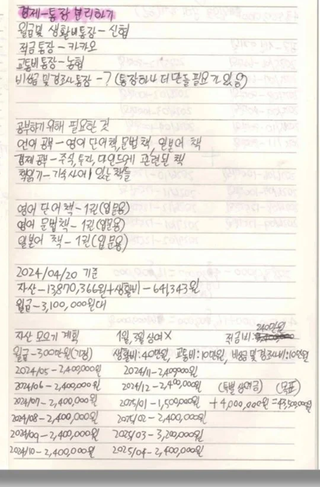 경제-통장 분리하기
월급 및 생활비통장-신협
적금통장-카카오
교통비통장-농협
비상금 및 경조사통장-? (통장하나 더 만들 필요가 있음)
공부하기 위해 필요한 것
언어 공부-영어 단어책, 문법책, 일본어 책
경제 공부-주식, 투자, 마인드에 관련된 책
책읽기-기숙사에 있는 책들
영어 단어 책-1권(입문용)
영어 문법 책-1권(입문용)
일본어 책-1권(입문용)
2024/04/20 기준
자산-13,870,366원+생활비-64,343원
월급-3,100,000원대
자산 모으기 계획 1월, 3월 상여X 적금비: 240만원
월급-300만원(가정) 생활비:40만원, 교통비:10만원, 비상금 및 경조사비:10만원
2024/05-2,400,000원 2024/11-2,400,000원
2024/06-2,400,000원 2024/12-2,400,000원 (특별상여금) (목표)
2024/07-2,400,000원 2025/01-1,500,000원 +4,000,000원=43,500,000원
2024/08-2,400,000원 2025/02-2,400,000원
2024/09-2,400,000원 2025/03-3,200,000원
2024/10-2,400,000원 2025/04-2,400,000원